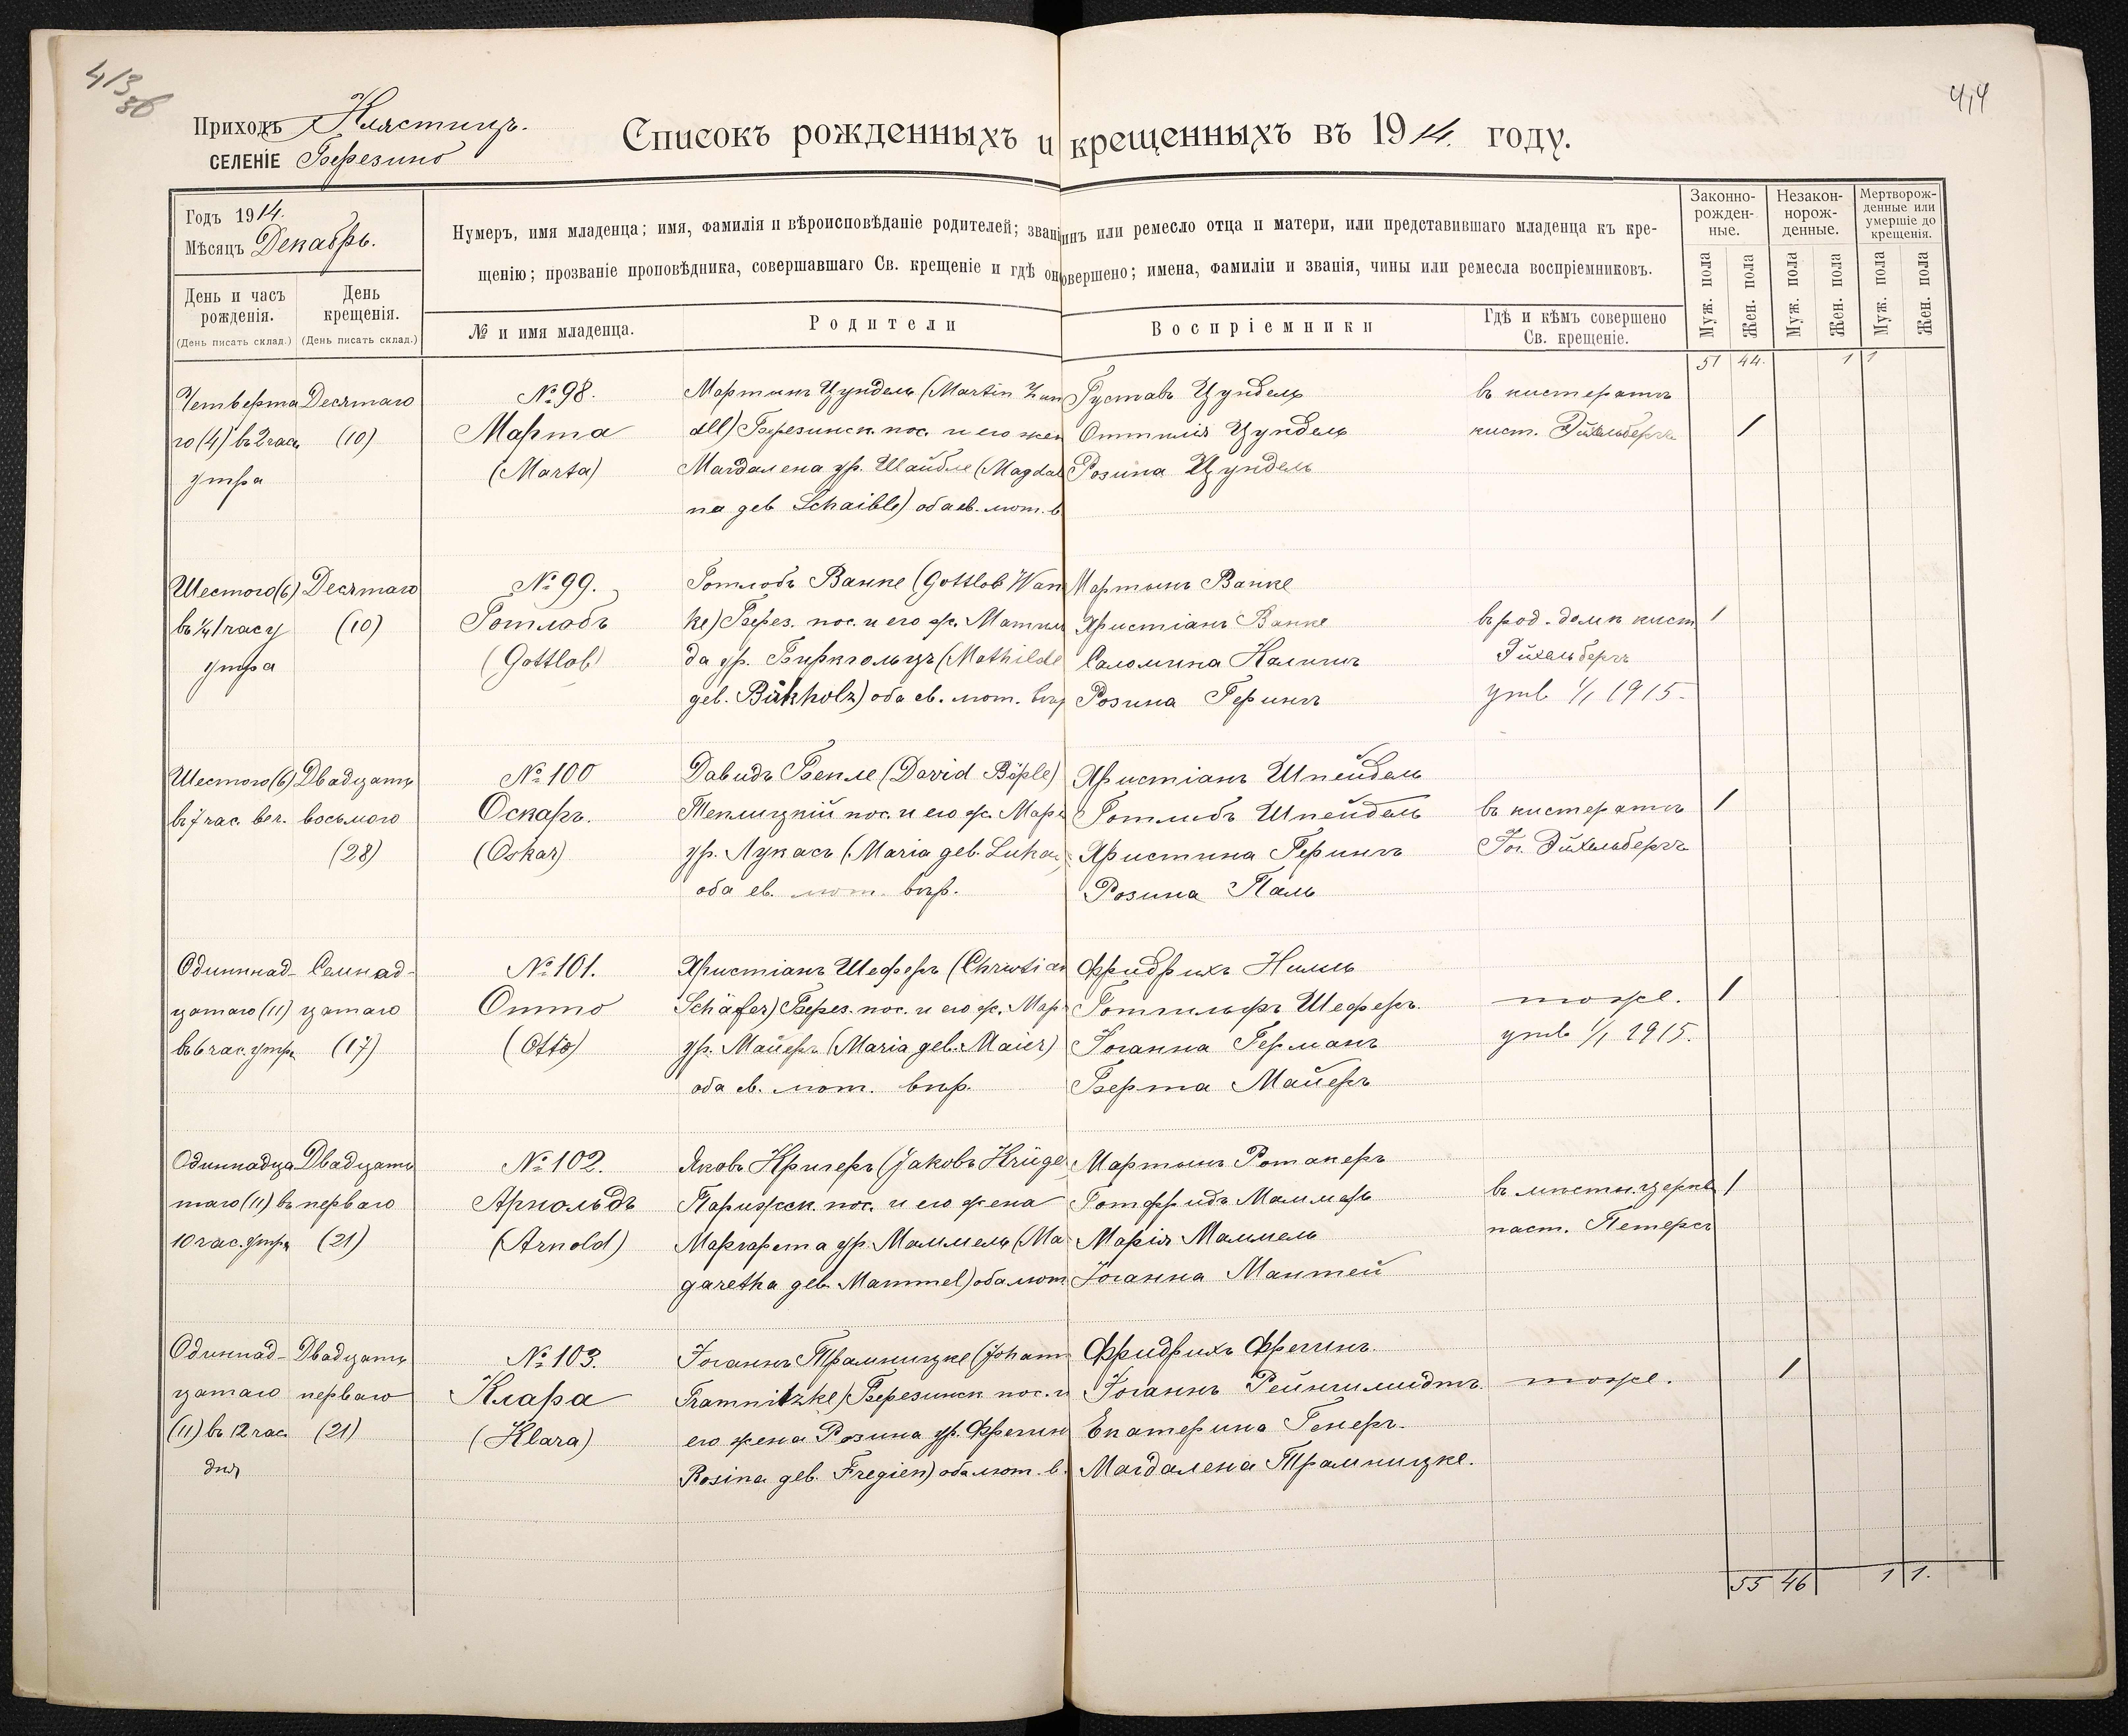 413
об
414
Приходъ Клястицъ.
СЕЛЕНІЕ Березино
Списокъ рожденныхъ и крещенныхъ въ 1914. году.
Годъ 1914.
Мѣсяцъ Декабрь.
День и часъ рожденія.
(День писать склад.)
День крещенія.
(День писать склад.)
Нумеръ, имя младенца; имя, фамилія и вѣроисповѣданіе родителей; званіе, чинъ или ремесло отца и матери, или представившаго младенца къ кре-
щенію; прозваніе проповѣдника, совершавшаго Св. крещеніе и гдѣ оно совершено; имена, фамиліи и званія, чины или ремесла воспріемниковъ.
№ и имя младенца.
Родители
Воспріемники
Гдѣ и кѣмъ совершено
Св. крещеніе.
Законно-
рожден-
ные.
Незакон-
норож-
денные.
Мертворож-
денные или
умершіе до
крещенія.
Муж. пола
Жен. пола
Муж. пола
Жен. пола
Муж. пола
Жен. пола
51 44. 1 1
Четверта
го (4) въ 2 час.
утра
Десятаго
(10)
№ 98.
Марта
(Marta)
Мартинъ Цундель (Martin Zun
dell) Березинск. пос. и его жен
Магдалена ур. Шайбле (Magdal
na geb Schaible) оба ев. лют. в
Густавъ Цундель
Оттилія Цундель
Розина Цундель
въ кистератѣ
кист. Эйхельбергъ
1
Шестого (6)
въ 1/4 1 часу
утра
Десятаго
(10)
№ 99.
Готлобъ
(Gottlob)
Готлобъ Ванке (Gottlob Wan
ke) Берез. пос. и его ж. Матиль
да ур. Биркгольцъ (Mathilde
geb. Birkholz) оба ев. лют. вѣр
Мартынъ Ванке
Христіанъ Ванке
Саломина Калишъ
Розина Герингъ
въ род. домѣ кист
Эйхельбергъ
утв 1/1 1915.
1
Шестого (6)
въ 7 час. веч.
Двадцать
восьмого
(28)
№ 100
Оскаръ.
(Oskar)
Давидъ Бепле (David Böple)
Теплицкій пос. и его ж. Марі
ур. Лукасъ (Maria geb. Lukas)
оба ев. лют. вѣр.
Христіанъ Шпейдель
Готлибъ Шпейдель
Христина Герингъ
Розина Паль
въ кистератѣ
Іог. Эйхельбергъ
1
Одиннад-
цатаго (11)
въ 6 час. утра
Семнад-
цатаго
(17)
№ 101.
Отто
(Otto)
Христіанъ Шеферъ (Christian
Schäfer) Берез. пос. и его ж. Мар
ур. Майеръ (Maria geb. Maier)
оба ев. лют. вѣр.
Фридрихъ Нилль
Готгильфъ Шеферъ.
Іоганна Германъ
Берта Майеръ
тоже.
утв 1/1 1915.
1
Одиннадца
таго (11) въ
10 час. утра
Двадцать
перваго
(21)
№ 102.
Арнольдъ
(Arnold)
Яковъ Кригеръ (Jakob Krüge
Парижск. пос. и его жена
Маргарета ур. Маммель (Ma
garetha geb Mammel) оба лют
Мартынъ Ротакеръ
Готфридъ Маммель
Марія Маммель
Іоганна Мантей
въ мѣстн. церкв
паст. Петерсъ
1
Одиннад-
цатаго
(11) въ 12 час
дня
Двадцать
перваго
(21)
№ 103.
Клара
(Klara)
Іоганнъ Трамницке (Johann
Tramnitzke) Березинск пос. и
его жена Розина ур. Фрегин
Rosina geb. Fregien) оба лют. в.
Фридрихъ Фрегинъ.
Іоганнъ Рейншмидтъ.
Екатерина Генеръ.
Магдалена Трамницке.
тоже.
1
55 46 1 1.